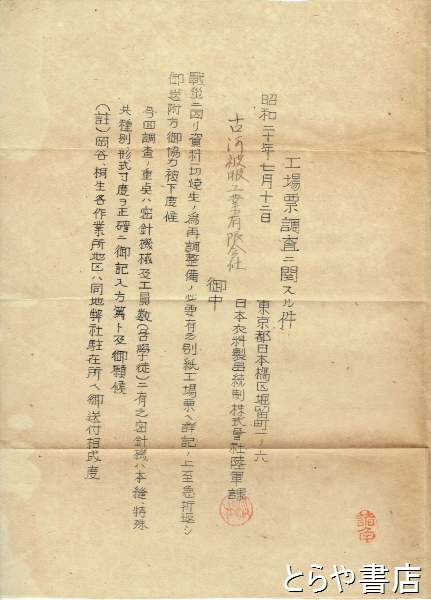 工場票調査ニ関スル件
昭和二十年七月十二日
東京都日本橋区堀留町一ノ六
日本衣料製品統制株式會社陸軍課
古河被服工業有限会社
御中
戰災ニ因リ資料一切焼失ノ為再調整備ノ必要有之別紙工場票ヘ詳記ノ上至急折返シ
御送附方御協力被下度候
今回調査ノ重点ハ密針機械及工員数(含学徒)ニ有之密針機ハ本縫、特殊
共種別形式寸度ヲ正確ニ御記入方篤ト及御願候
(註)岡谷、桐生各作業所地区ハ同地弊社駐在所ヘ御送付相成度
とらや書店